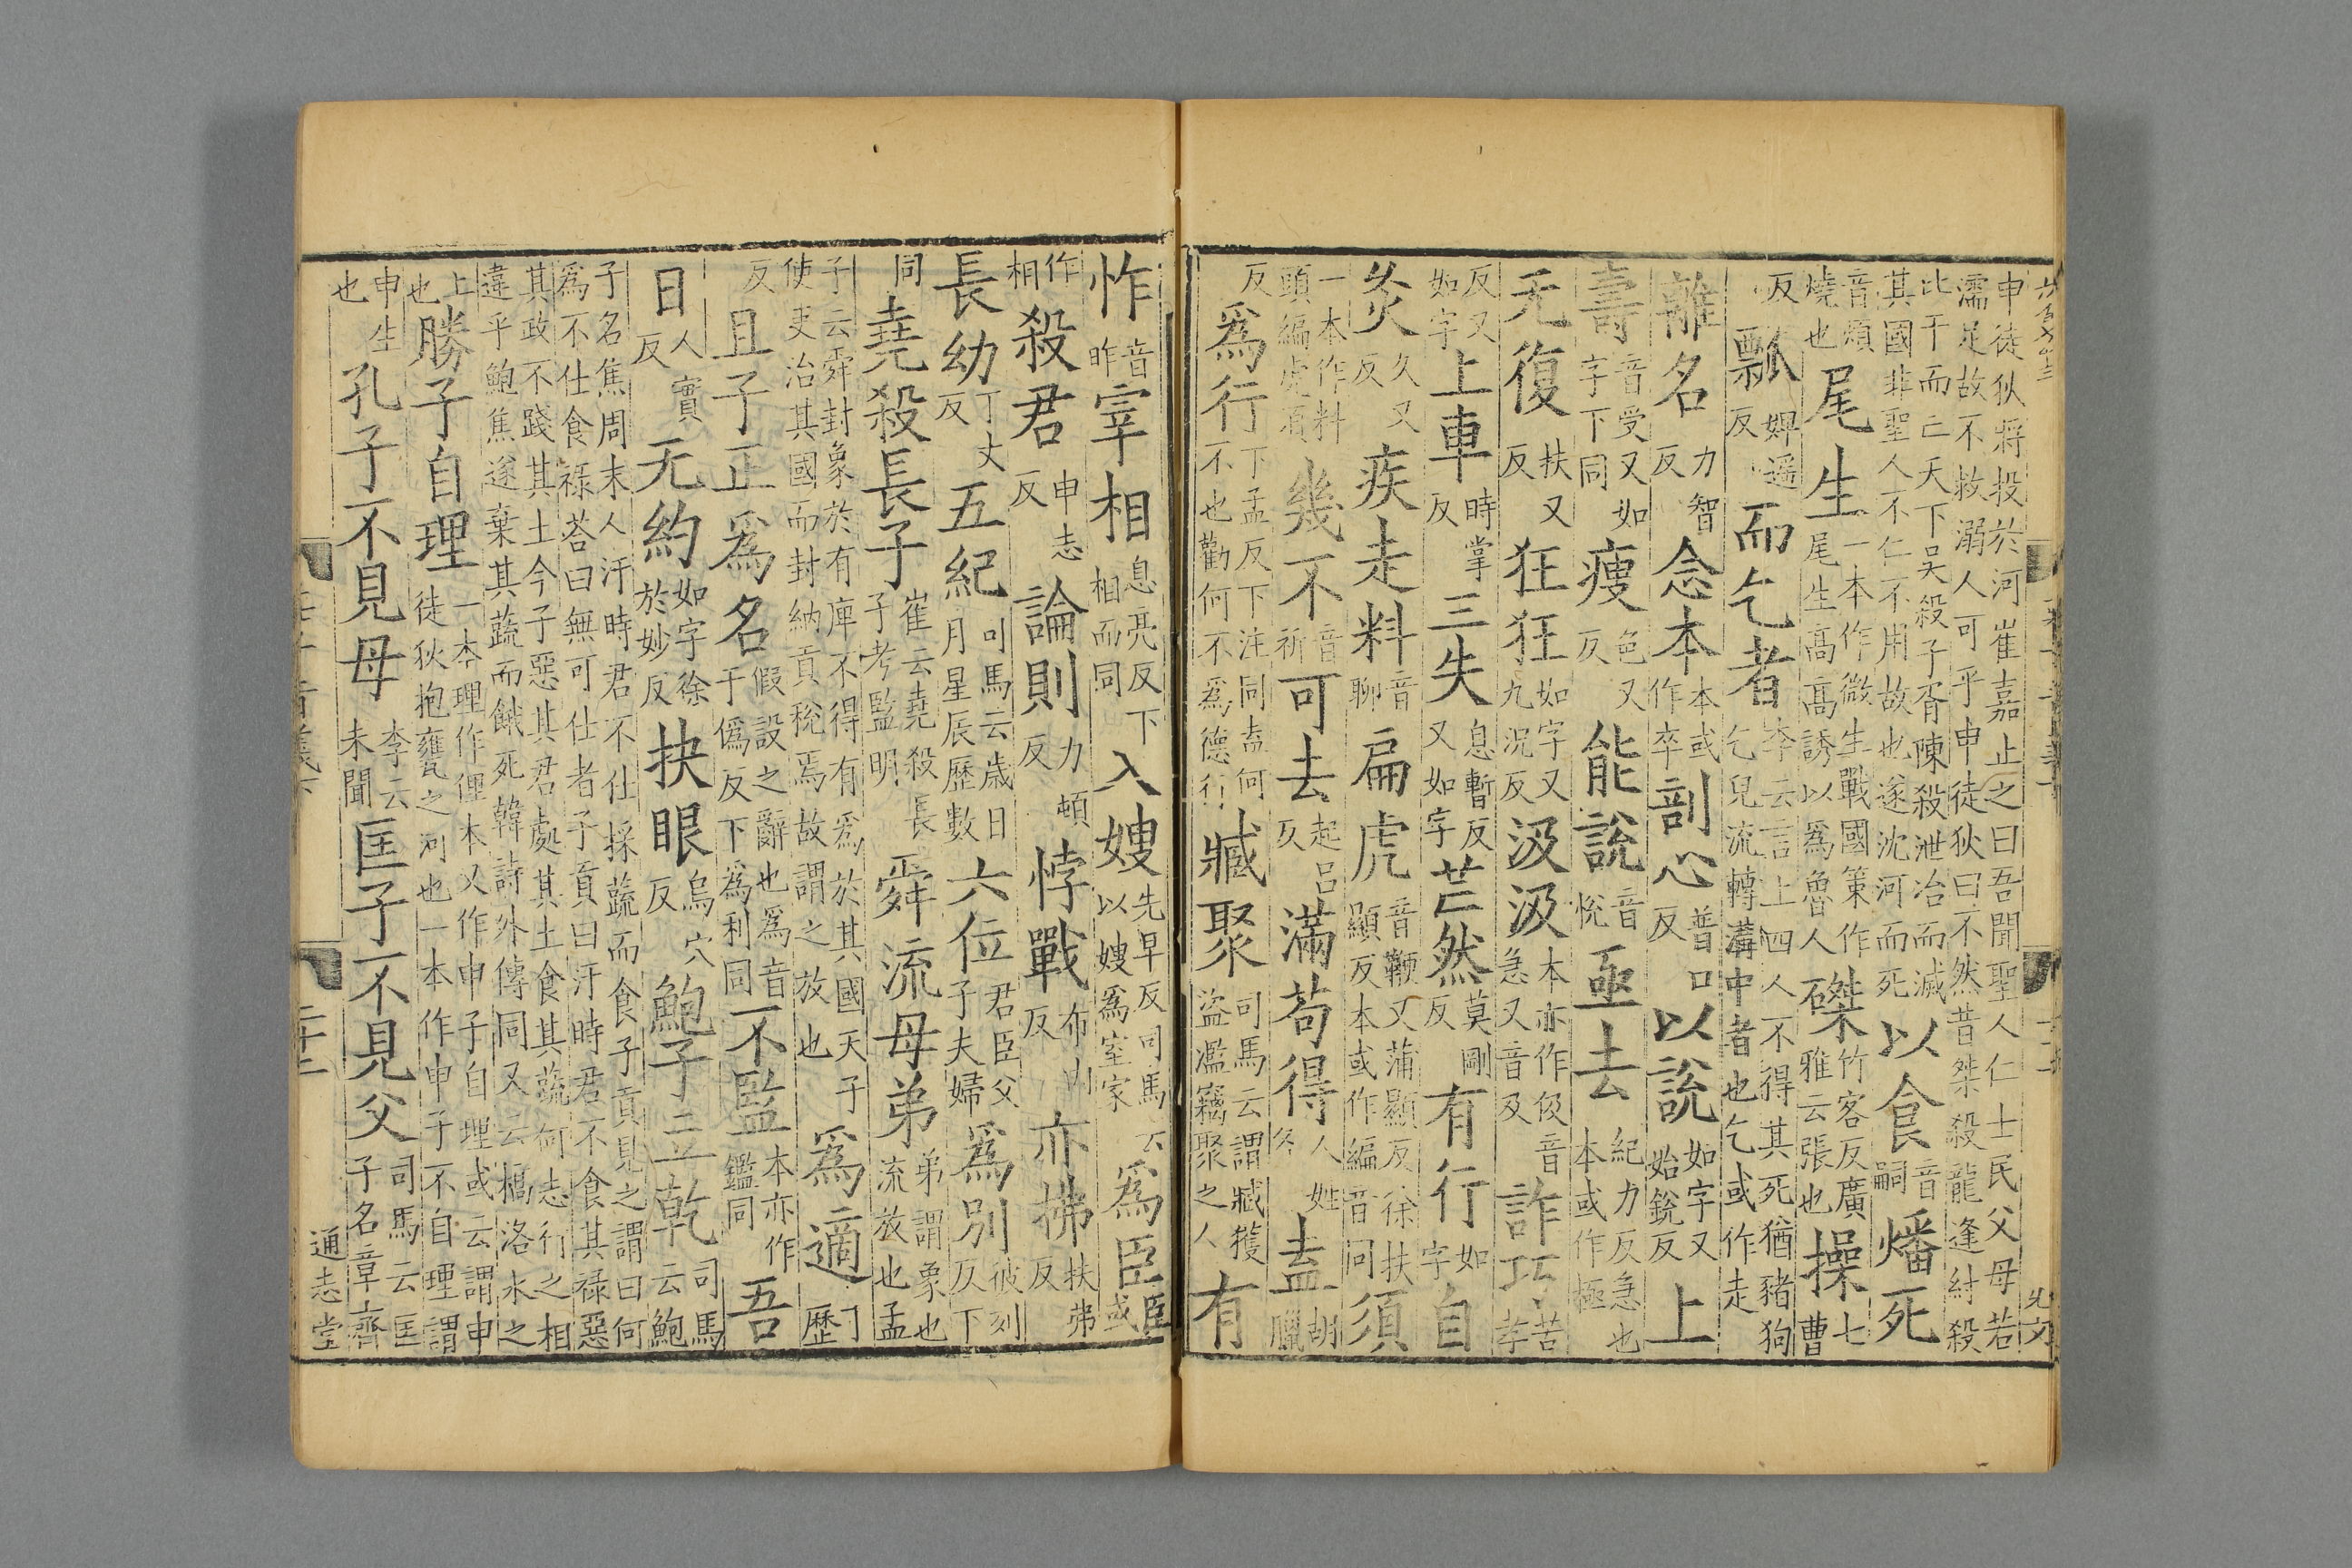 申徒狄將投於河崔嘉止之曰吾聞聖人仁士民父母若濡足故不救溺人可乎申徒狄曰不然昔桀殺龍逢紂殺
比干而亡天下吴殺子胥陳殺泄冶而滅其國非聖人不仁不用故也遂沈河而死以食音嗣燔死
音煩燒也尾生一本作微生戰國策作尾生高高誘以爲魯人磔竹客反廣雅云張也操七曹
反瓢婢遥反而乞者李云言上四人不得其死猶豬狗乞兒流轉溝中者也乞或作走
離名力智反念本本或作卒剖心普口反以說如字又始銳反上
壽音受又如字下同瘦色又反能說音悅亟去紀力反急也本或作極
无復扶又反狂狂如字又九況反汲汲本亦作伋音急又音及詐巧苦孝
反又如字上車時掌反三失息暫反又如字芒然莫剛反有行如字自
炙久又反疾走料音聊扁虎音鞭又蒲顯反徐扶顯反本或作編音同須
一本作料頭編虎須幾不音祈可去起吕反滿苟得人姓名盍胡臘
反爲行下孟反下下注同盍何不也勸何不爲德行臧聚司馬云謂臧獲盜濫竊聚之人有
怍音昨宰相息亮反下相而同入嫂先早反司馬云以嫂爲室家爲臣臣或
作相殺君申志反論則力頓反悖戰布内反亦拂扶弗反
長幼丁丈反五紀司馬云歲日月星辰歷數六位君臣父子夫婦爲別彼列反下
同堯殺長子崔云堯殺長子考監明舜流母弟弟謂象也流放也孟
子云舜封象於有庳不得有爲於其國天子使吏治其國而封納貢稅焉故謂之放也爲適丁歷
反且子正爲名假設之辭也爲音于僞反下爲利同不監本亦作鑑同吾
日人實反无約如字徐於妙反抉眼烏穴反鮑子立乾司馬云鮑
子名焦周末人汙時君不仕採蔬而食子貢見之謂曰何爲不仕食祿荅曰無可仕者子貢曰汙時君不食其祿惡
其政不踐其土今子惡其君處其土食其蔬何志行之相違乎鮑焦遂棄其蔬而餓死韓詩外傳同又云槁洛水之
上也勝子自理一本理作俚本又作申子自埋或云謂申徒狄抱甕之河也一本作申子不自理謂
申生也孔子不見母李云未聞匡子不見父司馬云匡子名章齊
通志堂